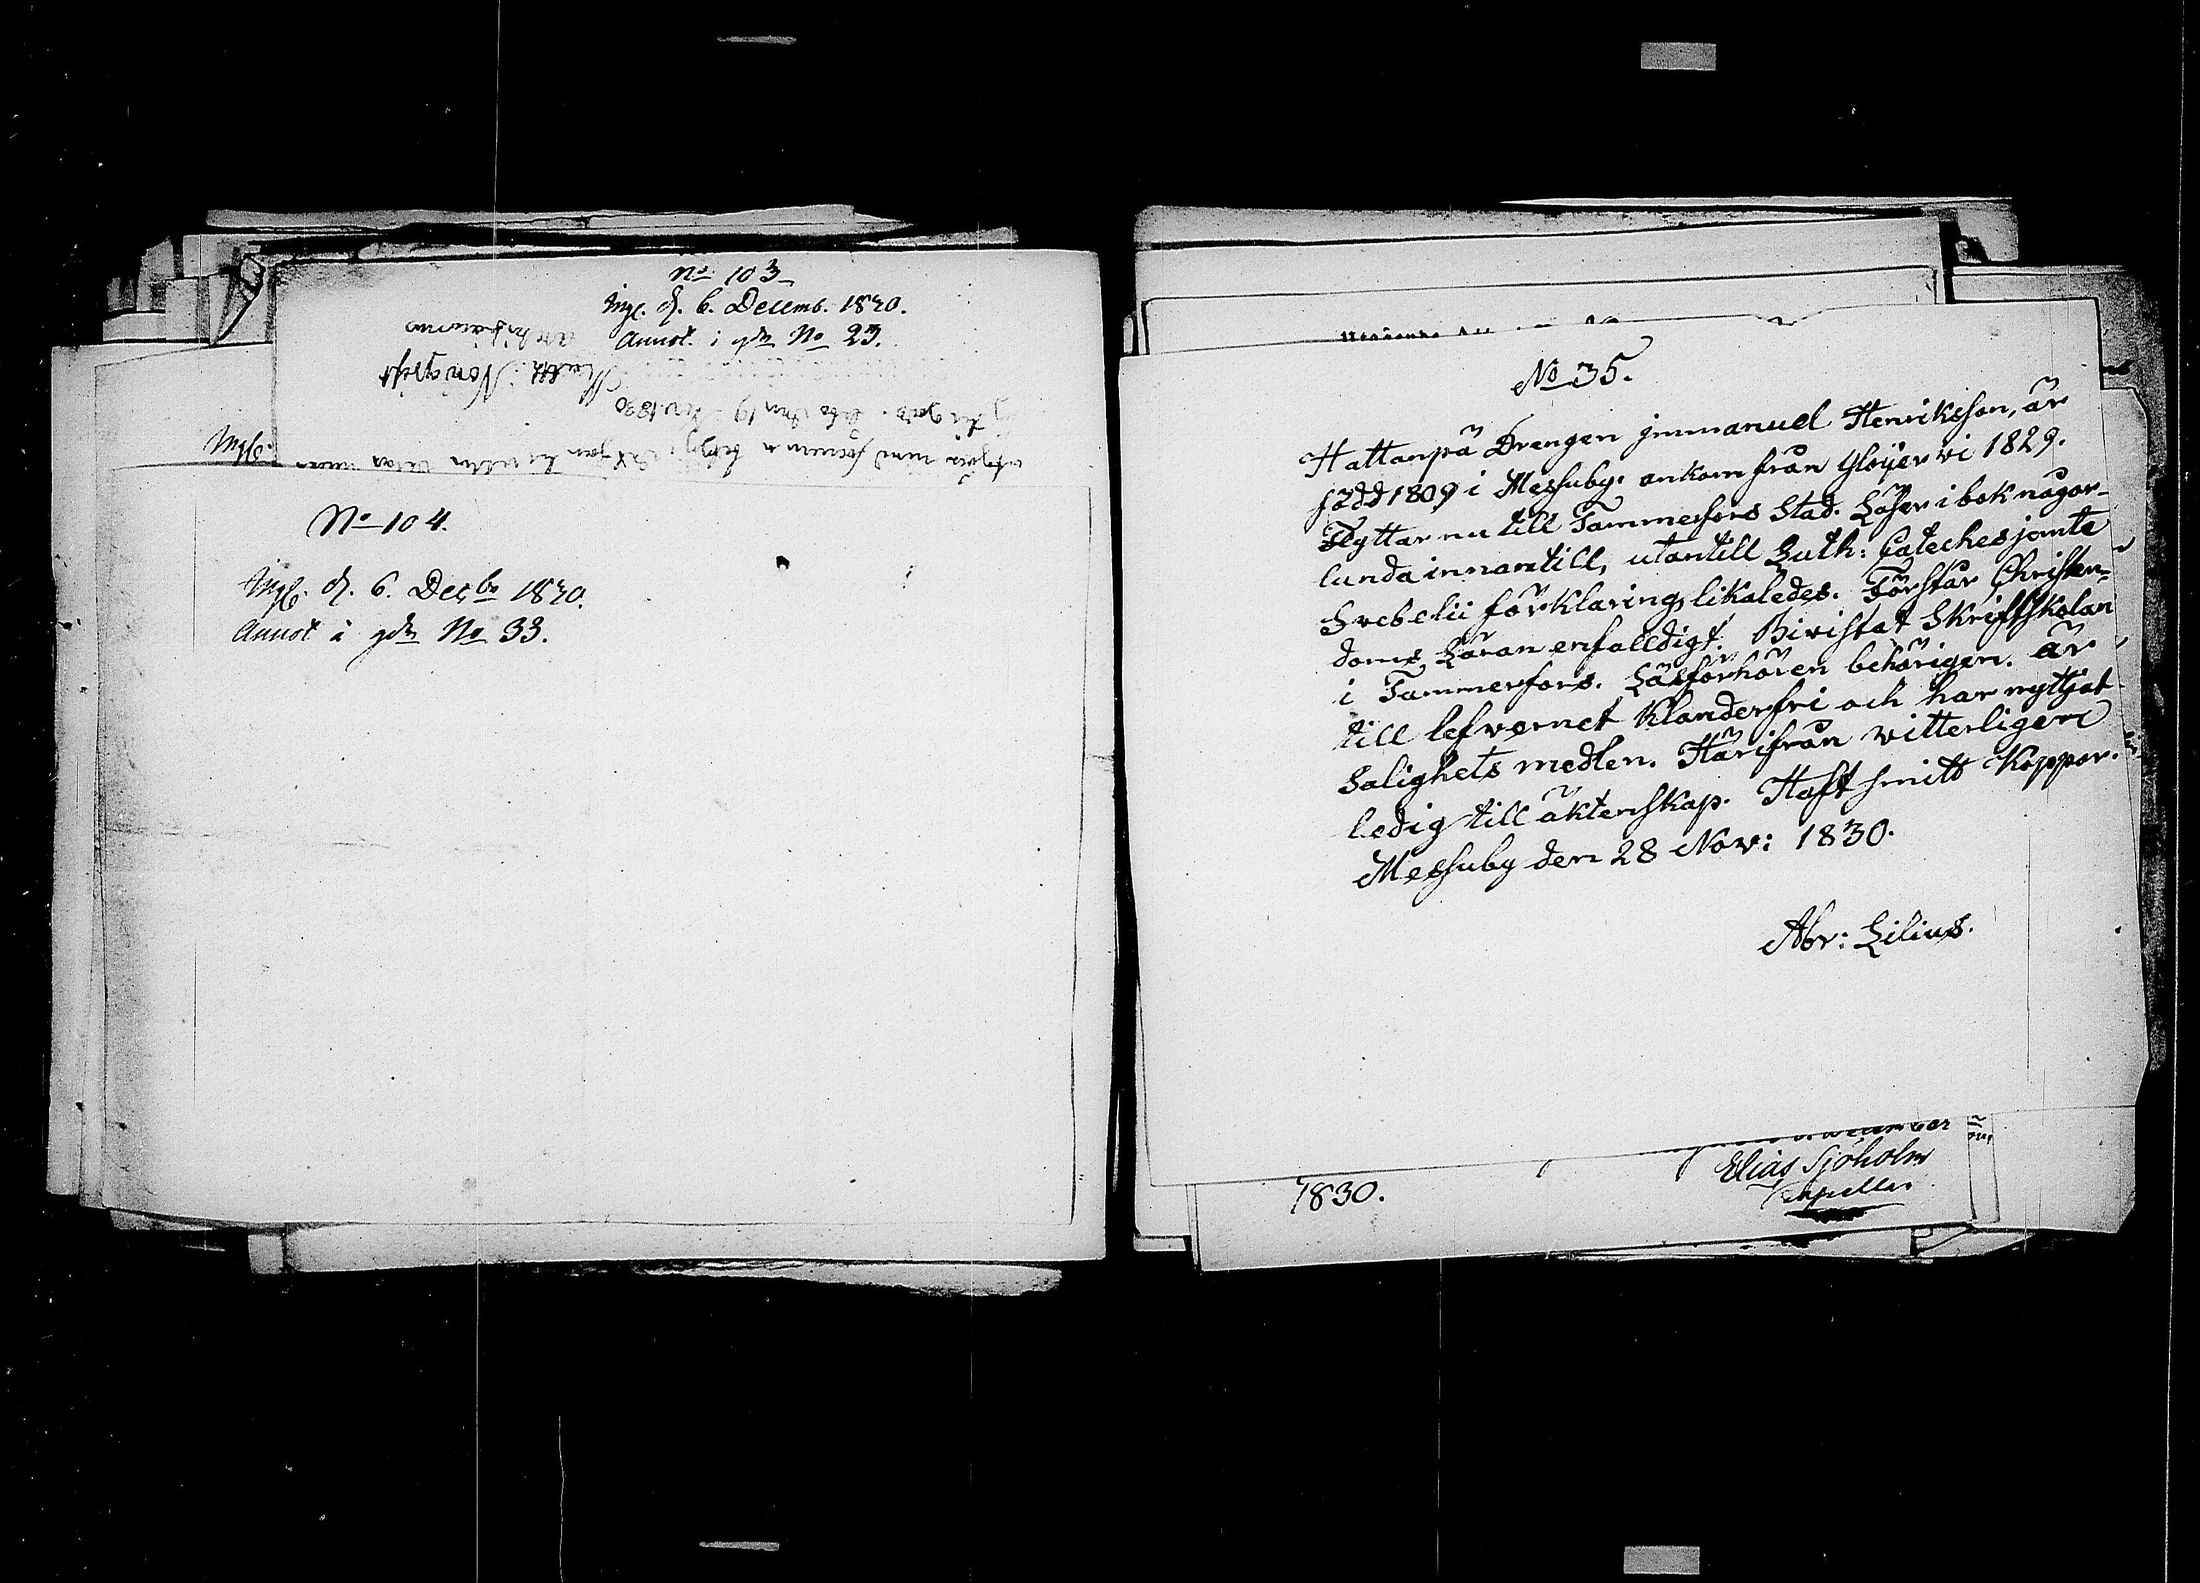 No 103
Ingl. d. 6. Decemb. 1830.
Annot. i gdm No 23.
Ingl.
No 104.
Ingl. d. 6. Decbr 1830.
Annot i gdm No 33.
No 35.
Hattanpä Drengen Jmmanuel Henriksson, är
född 1809 i Messuby. ankom från Ylöjervi 1829.
Flyttar nu till Tammerfors Stad. Läser i bok någor-
lunda innantill, utantill Luth: Cateches jemte
Svebelii förklaring likaledes. Förstår Christen-
doms Läran enfalldigt. Bivistat Skriftskolan
i Tammerfors. Läsförhören behörigen. är
till lefvernet klanderfri och har nyttjat
Salighets medlen. Härifrån witterligen
ledig till äktenskap. Haft smitt Koppor.
Messuby den 28 Nov: 1830.
Abr: Lilius.
1830.
Elias Sjöholm
Capellan